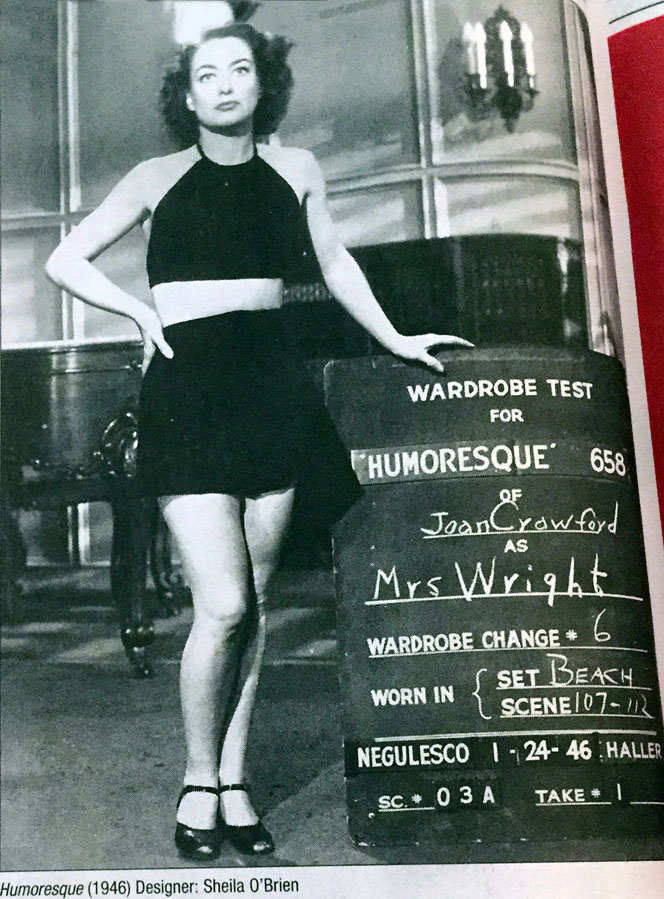 WARDROBE TEST
FOR
"HUMORESQUE" 658
OF
Joan Crawford
AS
Mrs Wright
WARDROBE CHANGE # 6
WORN IN { SET BEACH
SCENE 107-112
NEGULESCO 1-24-46 HALLER
SC. # 03A TAKE # 1
Humoresque (1946) Designer: Sheila O'Brien